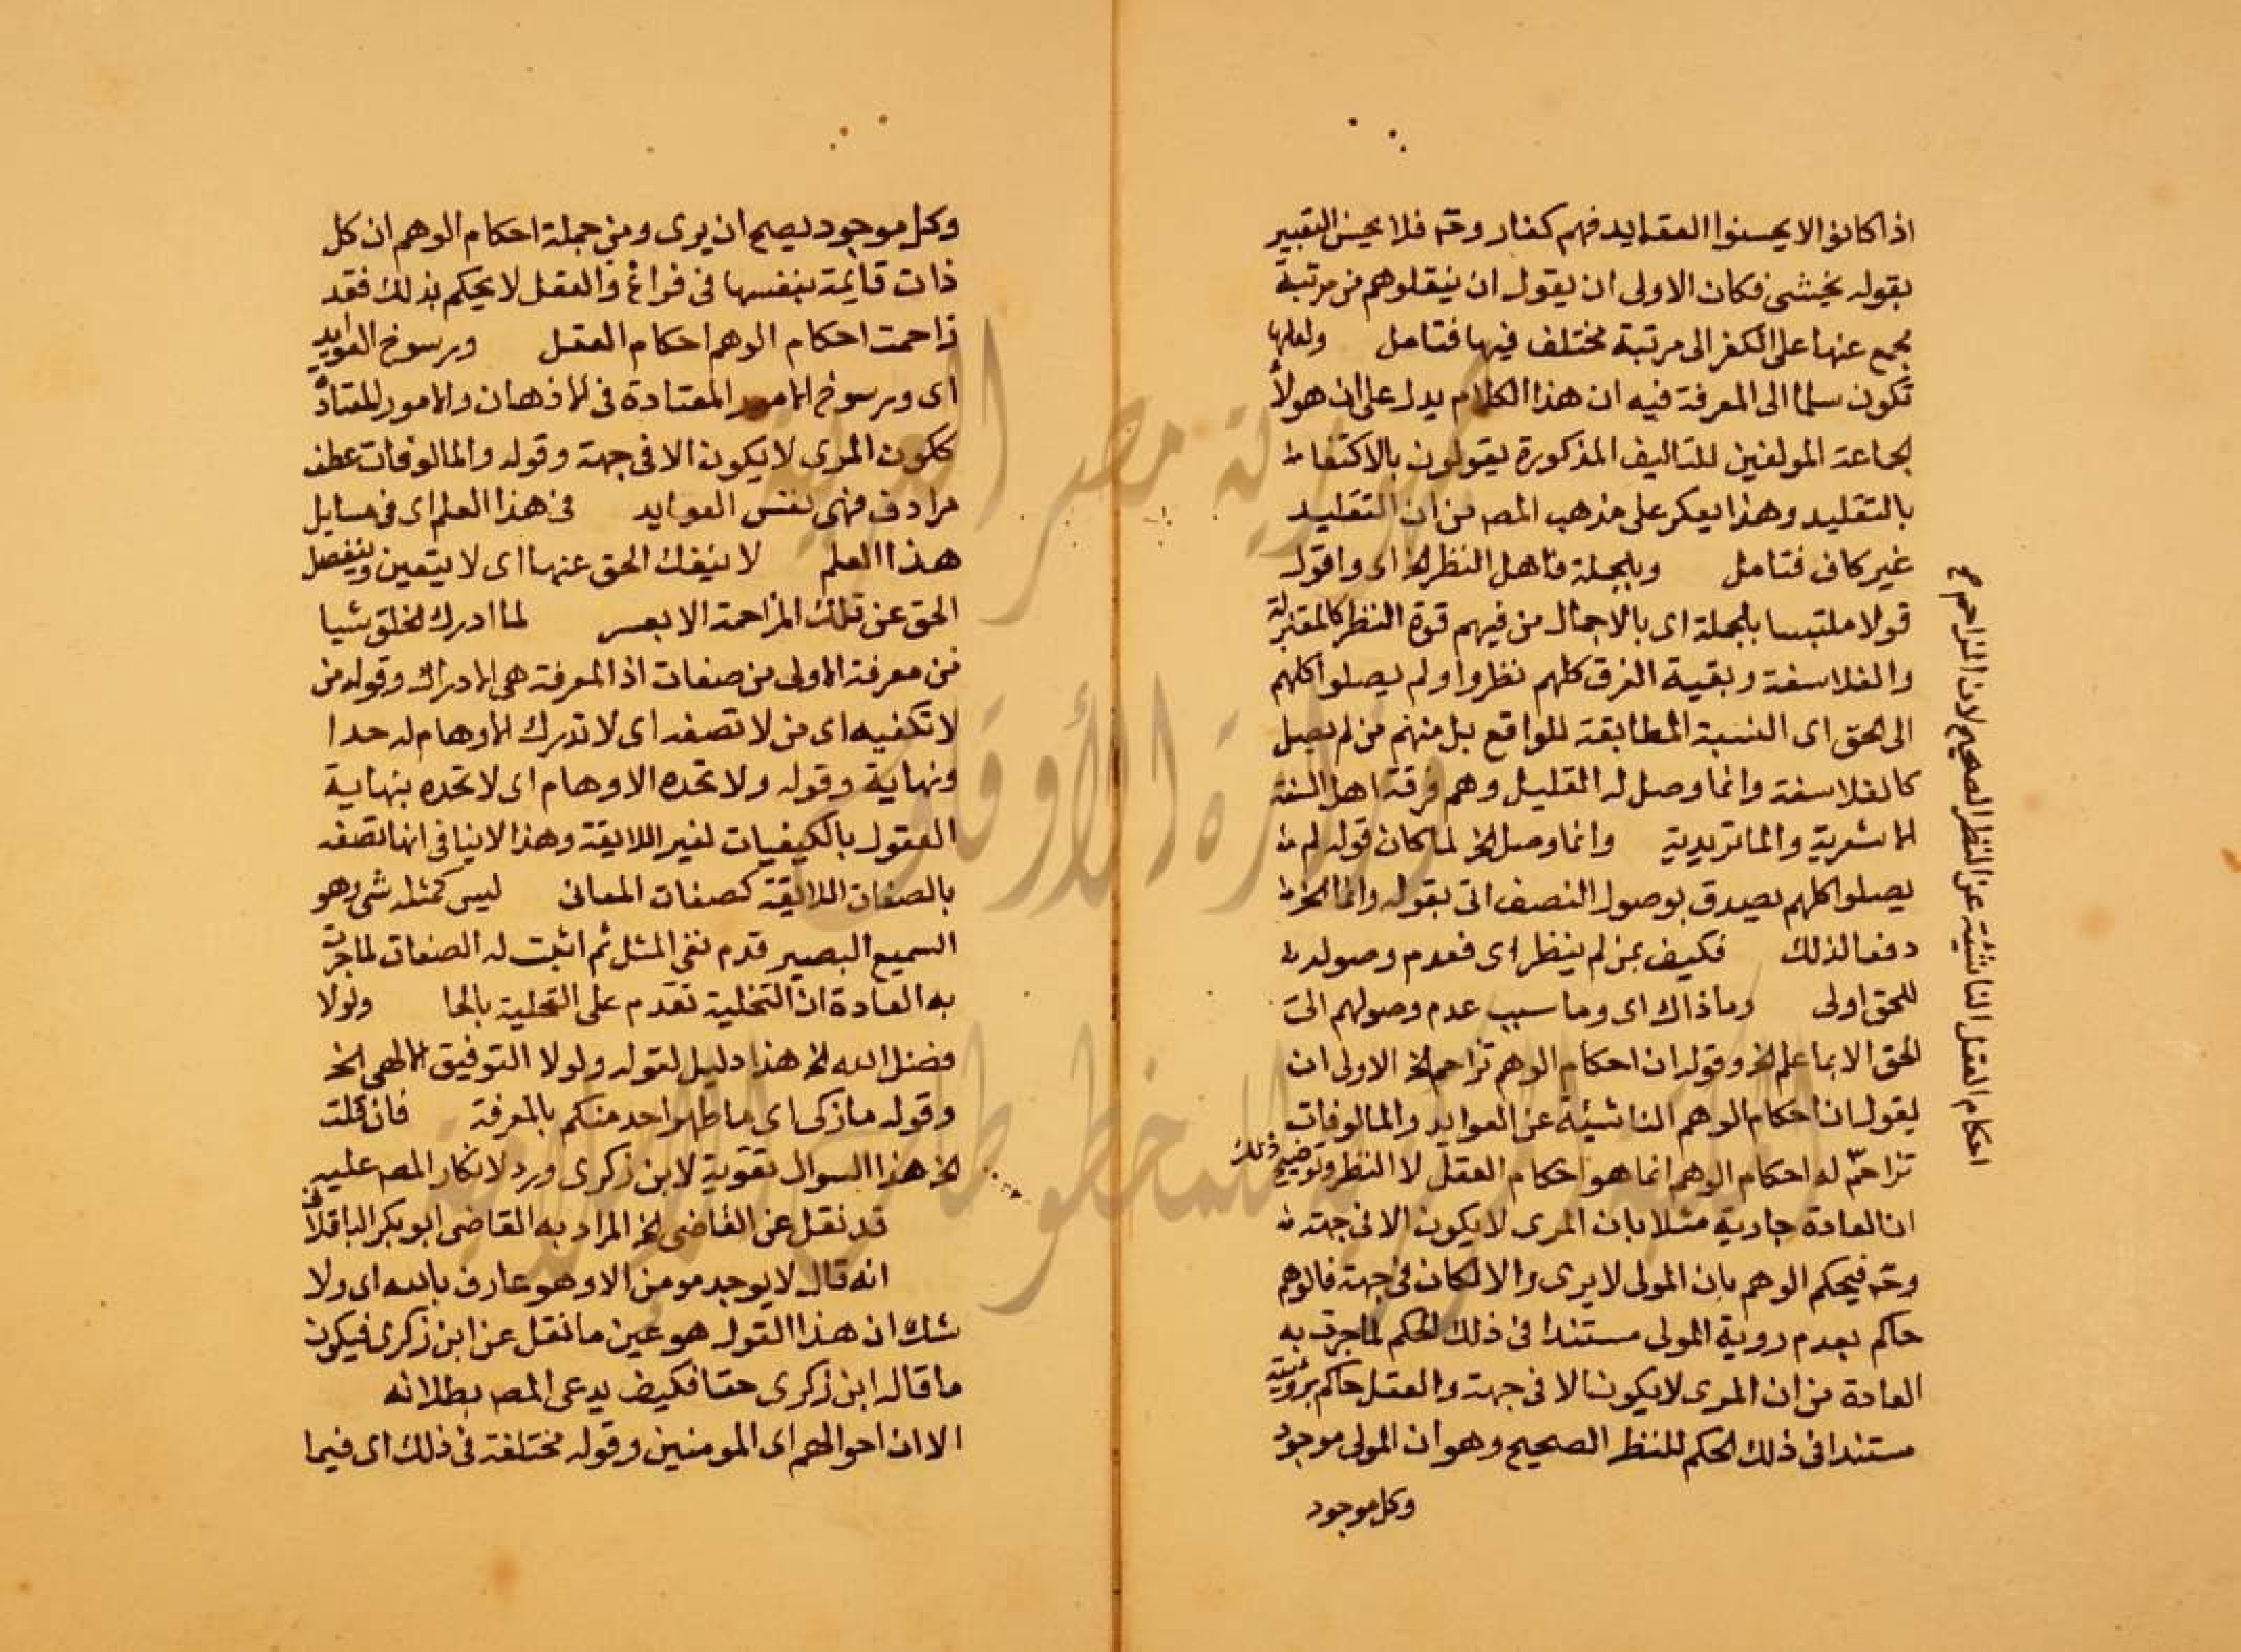 اذا كانوا لا يحسنوا العقايد فهم كفار وح فلا يحسن التعبير
بقوله يخشى فكان الاولى ان يقول ان ينقلوهم من مرتبة
مجمع عنها على الكفر الى مرتبة مختلف فيها فتامل ولعلها
تكون سلما الى المعرفة فيه ان هذا الكلام يدل على ان هولاء
الجماعة المولفين للتاليف المذكورة يقولون بالاكتفاء
بالتقليد وهذا يعكر على مذهب المصـ من ان التقليد
غير كاف فتامل وبالجملة فاهل النظر الخ اى واقول
قولا ملتبسا بالجملة اى بالاجمال من فيهم قوة النظر كالمعتزلة
والفلاسفة وبقية الفرق كلهم نظروا ولم يصلوا كلهم
الى الحق اى النسبة المطابقة للواقع بل منهم من لم يصل
كالفلاسفة وانما وصل له القليل وهم فرقة اهل السنة
الاشعرية والماتريدية وانما وصل الخ لما كان قوله لم
يصلوا كلهم يصدق بوصول النصف اتى بقوله وانما الخ
دفعا لذلك فكيف بمن لم ينظر اى فعدم وصوله
للحق اولى وما ذاك اى وما سبب عدم وصولهم الى
الحق الا بما علم الخ وقوله ان احكام الوهم تزاحم الخ الاولى ان
يقول ان احكام الوهم الناشيئة عن العوايد والمالوفات
تزاحم له احكام الوهم انما هو احكام العقل لا النظر وتوضيح ذلك
ان العادة جارية مثلا بان المرى لا يكون الا فى جهة
وح فيحكم الوهم بان المولى لا يرى والا لكان فى جهة فالوهم
حاكم بعدم روية المولى مستندا فى ذلك الحكم لما جرت به
العادة من ان المرى لا يكون الا فى جهة والعقل حاكم برويته
مستندا فى ذلك الحكم للنظر الصحيح وهو ان المولى موجود
وكل موجود
احكام العقل الناشئة عن النظر الصحيح لان المزاحم
وكل موجود يصح ان يرى ومن جملة احكام الوهم ان كل
ذات قايمة بنفسها فى فراغ والعقل لا يحكم بذلك فقد
زاحمت احكام الوهم احكام العقل ورسوخ العوايد
اى ورسوخ الامور المعتادة فى الاذهان والامور المعتادة
ككون المرى لا يكون الا فى جهة وقوله والمالوفات عطف
مرادف فهى نفس العوايد فى هذا العلم اى فى مسايل
هذا العلم لا ينفك الحق عنها اى لا يتعين وينفصل
الحق عن تلك المزاحمة الا بعسر لما ادرك الخلق شيا
من معرفة المولى من صفات اذ المعرفة هى الادراك وقوله من
لا تكفيه اى من لا تصفه اى لا تدرك الاوهام له حدا
ونهاية وقوله ولا تحده الاوهام اى لا تحده بنهاية
العقول بالكيفيات لغير اللايقة وهذا لا ينافى انها تصفه
بالصفات اللايقة كصفات المعانى ليس كمثله شى وهو
السميع البصير قدم نفى المثل ثم اثبت له الصفات لما جرت
به العادة ان التخلية تقدم على التحلية بالحا ولولا
فضل الله الخ هذا دليل لقوله ولولا التوفيق الالهى الخ
وقوله ما زكى اى ما طهر احد منكم بالمعرفة فان قلت
الخ هذا السوال تقوية لابن زكرى ورد لانكار المصـ عليه
قد نقل عن القاضى الخ المراد به القاضى ابو بكر الباقلانى
انه قال لا يوجد مومن الا وهو عارف بالله اى ولا
شك ان هذا القول هو عين ما نقل عن ابن زكرى فيكون
ما قاله ابن زكرى حقا فكيف يدعى المصـ بطلانه
الا ان احوالهم اى المومنين وقوله مختلفة فى ذلك اى فيما